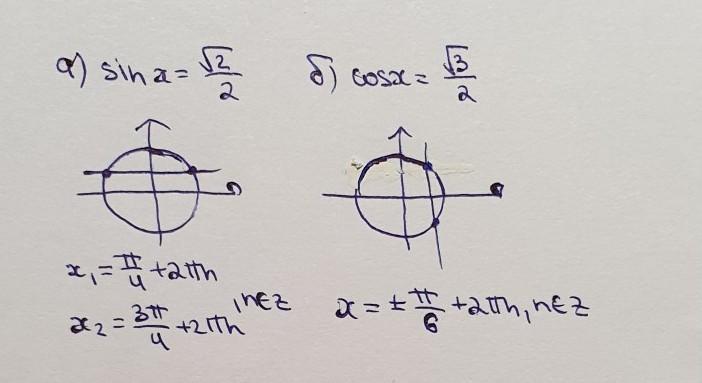 а) sin x = √2/2
б) cosx = √3/2
x₁ = π/4 + 2πn
x₂ = 3π/4 + 2πn, n∈z
x = ± π/6 + 2πn, n∈z